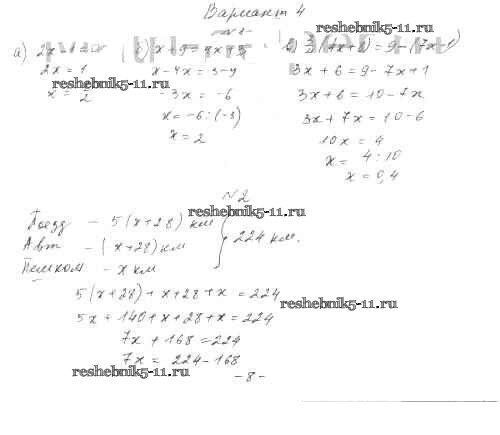 Вариант 4
reshebnik5-11.ru
№1
а) 2x
2x = 1
x = 1/2
reshebnik5-11.ru
x - 4x = 3 - 9
-3x = -6
x = -6 : (-3)
x = 2
3x + 6 = 9 - 7x + 1
3x + 6 = 10 - 7x
3x + 7x = 10 - 6
10x = 4
x = 4 : 10
x = 0,4
№2
reshebnik5-11.ru
Поезд - 5(x+28) км
Авт - (x+28) км
Пешком - x км
224 км.
5(x+28) + x+28 + x = 224
reshebnik5-11.ru
5x + 140 + x + 28 + x = 224
7x + 168 = 224
7x = 224 - 168
reshebnik5-11.ru
-8-